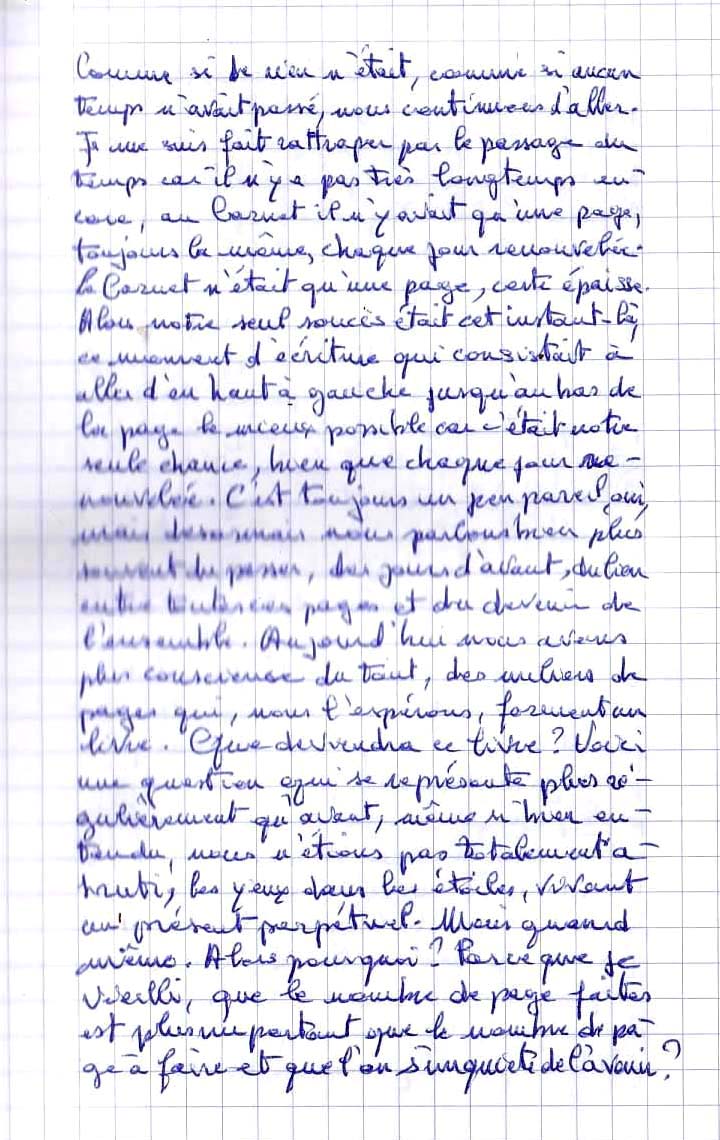 Comme si de rien n'était, comme si aucun
temps n'avait passé, nous continuons d'aller.
Je me suis fait rattraper par le passage du
temps car il n'y a pas très longtemps en-
core, au Carnet il n'y avait qu'une page,
toujours la même, chaque jour renouvelée.
Le Carnet n'était qu'une page, certe épaisse.
Alors notre seul soucis était cet instant-là,
ce moment d'écriture qui consistait à
aller d'en haut à gauche jusqu'au bas de
la page le mieux possible car c'était notre
seule chance, bien que chaque jour re-
nouvelée. C'est toujours un peu pareil, oui,
mais désormais nous parlons bien plus
souvent du passé, des jours d'avant, du lien
entre toutes ces pages et du devenir de
l'ensemble. Aujourd'hui nous avons
plus conscience du tout, des milliers de
pages qui, nous l'espérons, forment un
livre. Que deviendra ce livre ? Voici
une question qui se représente plus ré-
gulièrement qu'avant, même si bien en-
tendu, nous n'étions pas totalement a-
bruti, les yeux dans les étoiles, vivant
au présent perpétuel. Mais quand
même. Alors pourquoi ? Parce que je
vieilli, que le nombre de page faites
est plus important que le nombre de pa-
ge à faire et que l'on s'inquiète de l'avenir ?